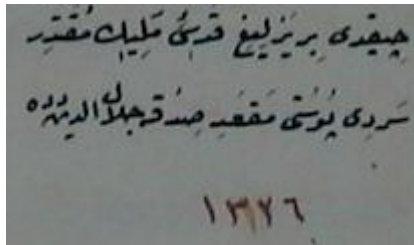 چیقدی بریزلیغ قدسئ ملیك مقتدر
سردی پوستی مقعد صدقه جلال الدین دده
١٣٧٦